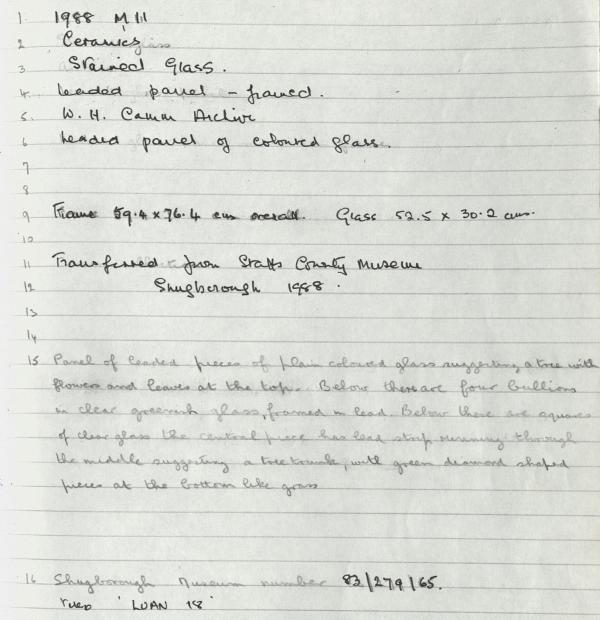 1 1988 M 111
2 Ceramics/glass
3 Stained Glass.
4. leaded panel - framed.
5. W. H. Camm Archive
6 leaded panel of coloured glass.
7
8
9 Frame 59.4 x 76.4 cms overall. Glass 52.5 x 30.2 cms.
10
11 Transferred from Staffs County Museum
12 Shugborough 1988.
13
14
15 Panel of leaded pieces of plain coloured glass suggesting a tree with
flowers and leaves at the top. Below there are four bullions
in clear greenish glass, framed in lead. Below there are squares
of clear glass the central piece has lead strip running through
the middle suggesting a tree trunk, with green diamond shaped
pieces at the bottom like grass
16 Shugborough Museum number 83/279/65.
'LOAN 18'